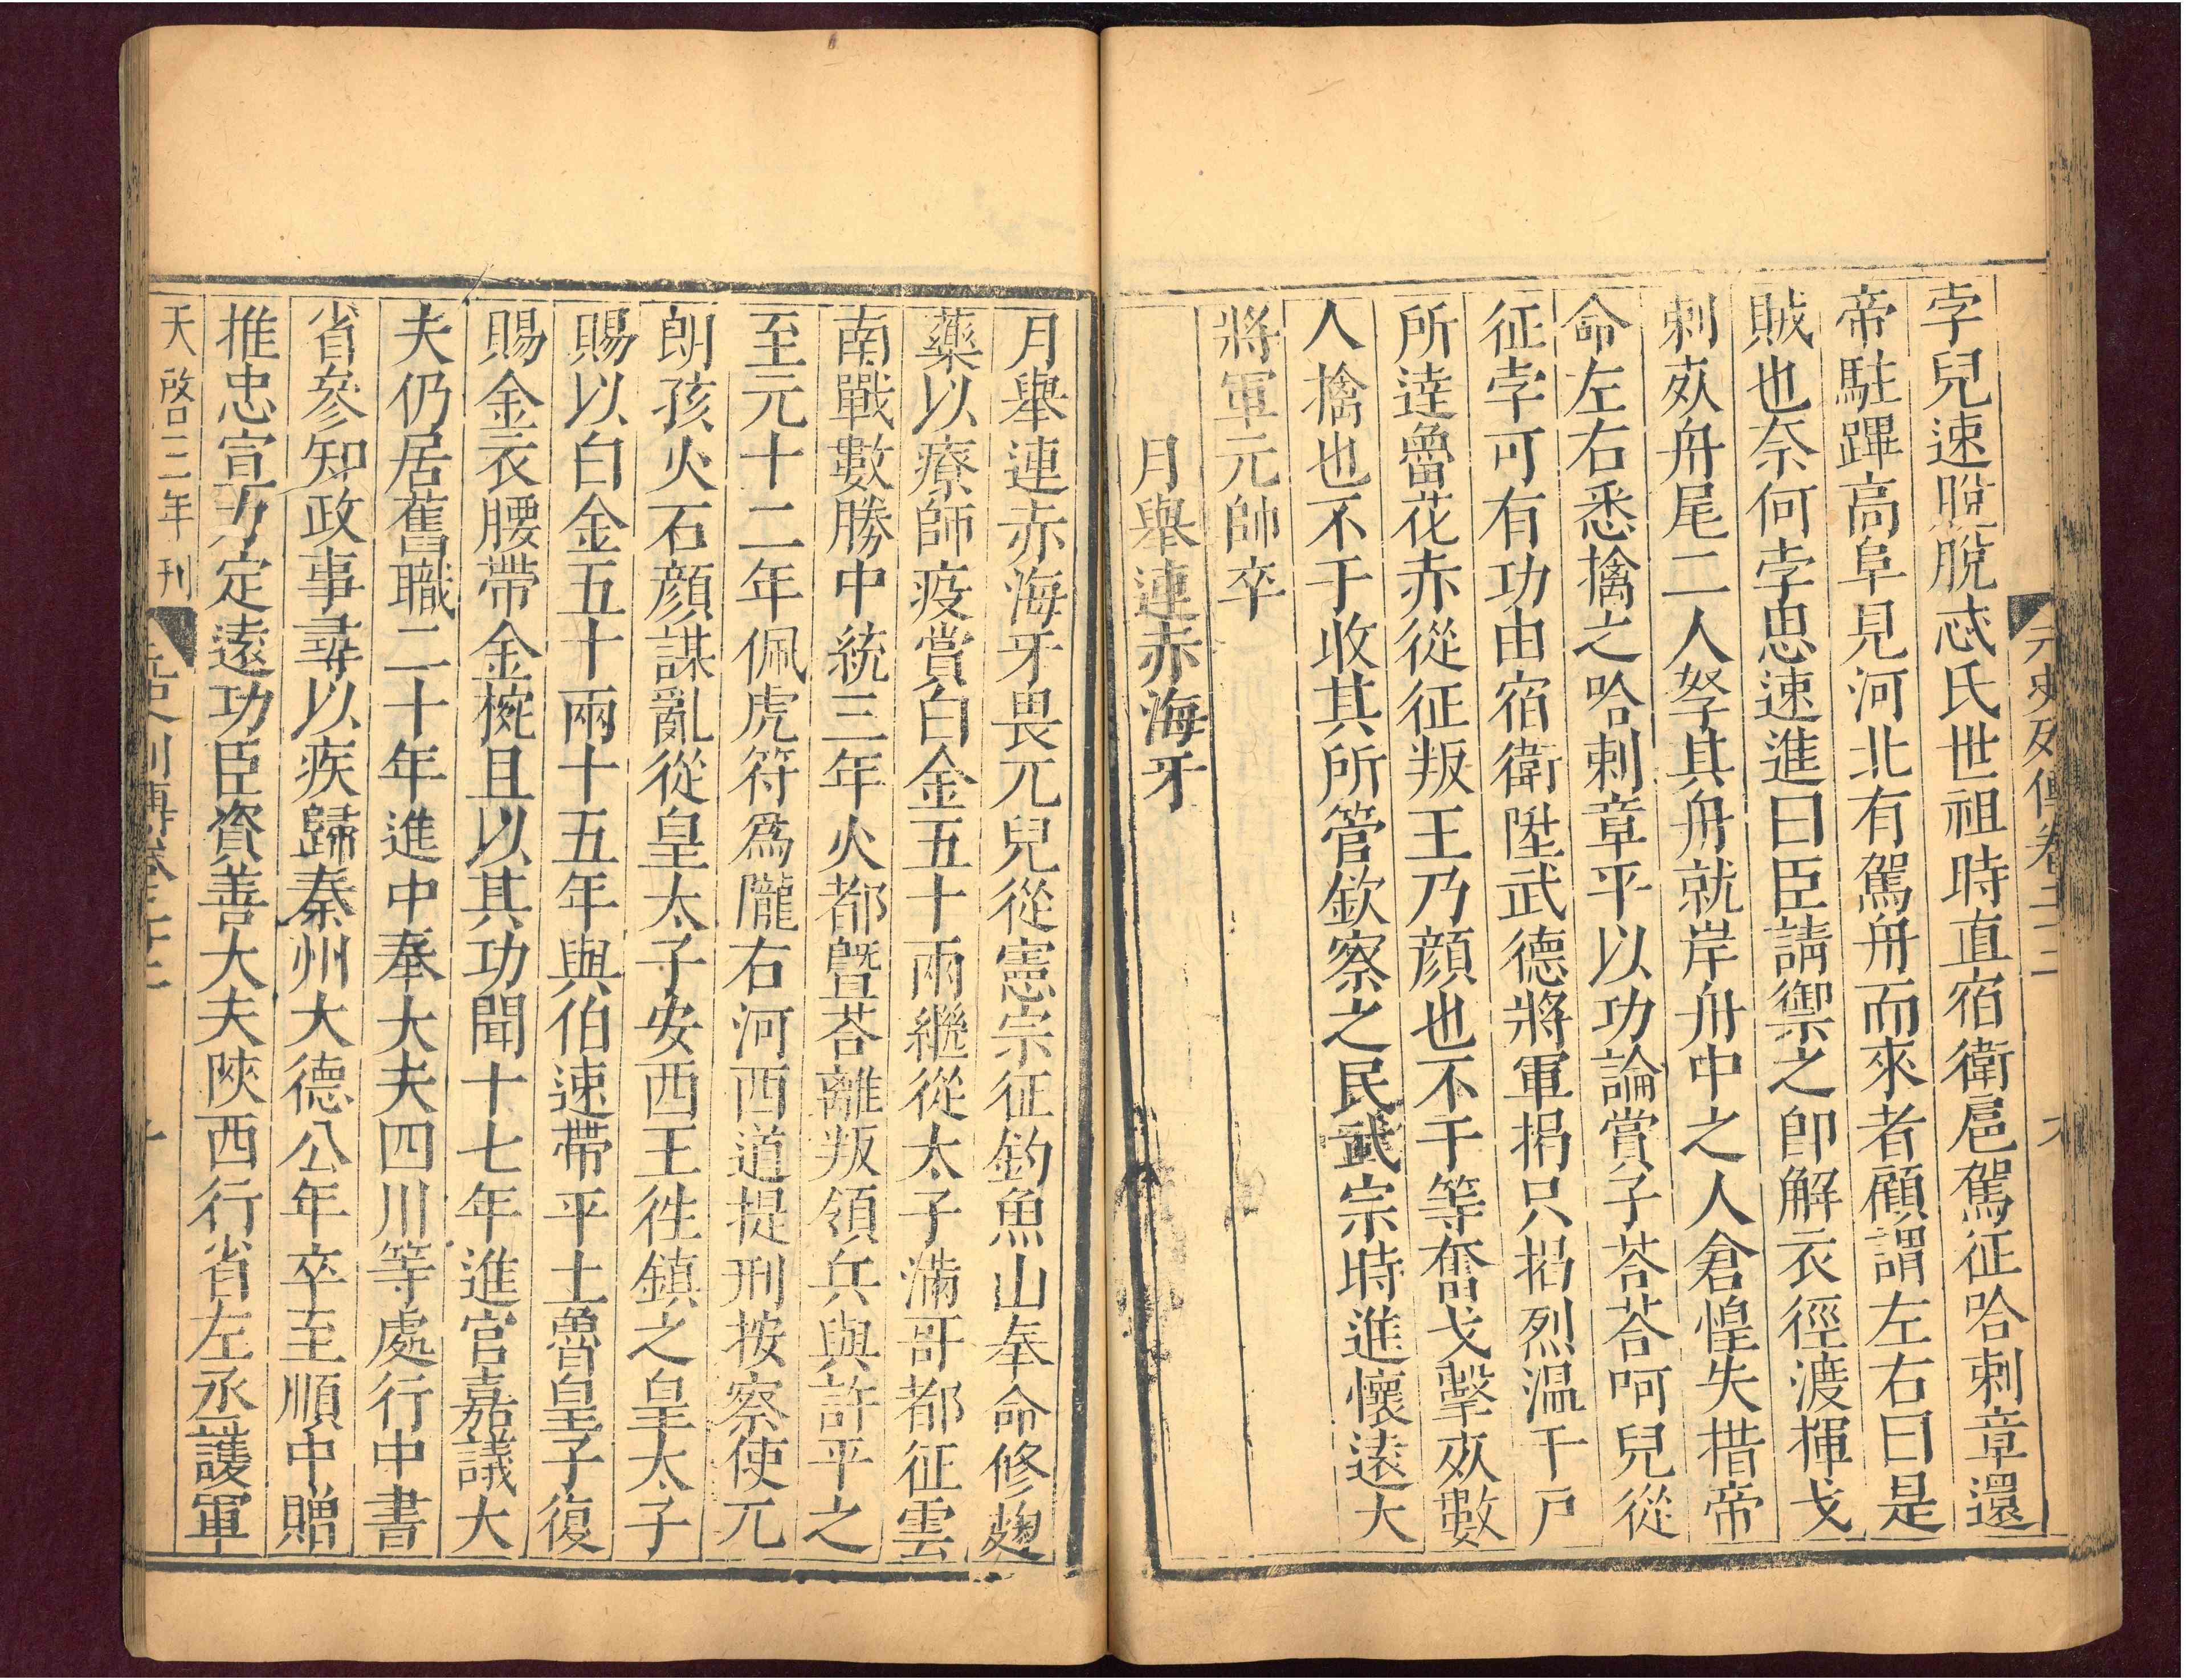 孛兒速脫脫忒氏世祖時直宿衛扈駕征哈剌章還
帝駐蹕高阜見河北有駕舟而來者顧謂左右曰是
賊也奈何孛忠速進曰臣請禦之卽解衣徑渡揮戈
刺㱠舟尾二人拏其舟就岸舟中之人倉惶失措帝
命左右悉擒之哈剌章平以功論賞子荅荅呵兒從
征孛可有功由宿衛陞武德將軍揭只揭烈温千戸
所逹魯花赤從征叛王乃顔也不干等奮戈擊㱠數
人擒也不干收其所管欽察之民武宗時進懷遠大
將軍元帥卒
月舉連赤海牙
月舉連赤海牙畏兀兒從憲宗征釣魚山奉命修麴
藥以療師疫賞白金五十兩繼從太子滿哥都征雲
南戰數勝中統三年火都曁荅離叛領兵與討平之
至元十二年佩虎符爲隴右河西道提刑按察使元
朗孩火石顔謀亂從皇太子安西王徃鎮之皇太子
賜以白金五十兩十五年與伯速帶平土魯皇子復
賜金衣腰帶金椀且以其功聞十七年進官嘉議大
夫仍居舊職二十年進中奉大夫四川等處行中書
省參知政事尋以疾歸秦州大德公年卒至順中贈
推忠宣力定遠功臣資善大夫陝西行省左丞護軍
天啓三年刊